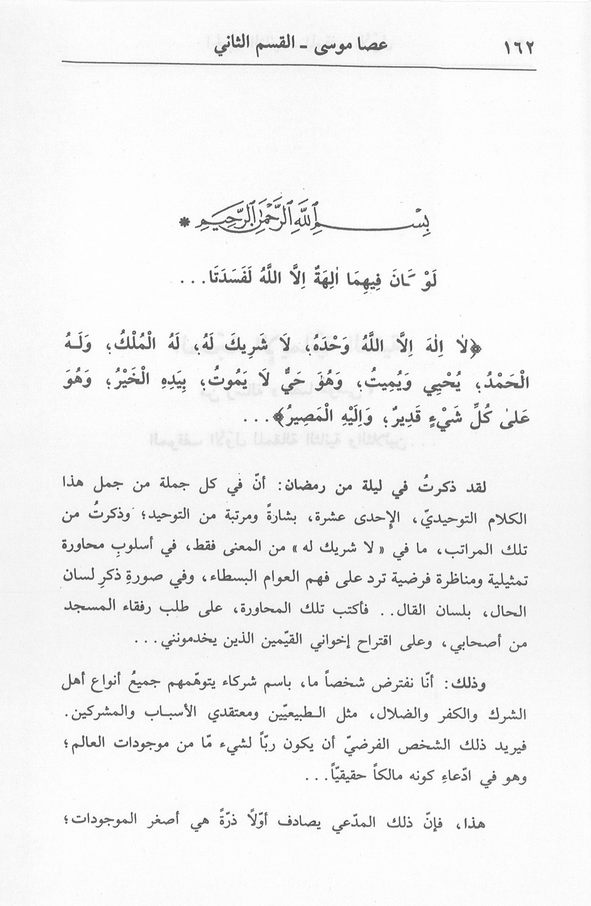 ١٦٢ عصا موسى - القسم الثاني
بِسْمِ اللَّهِ الرَّحْمٰنِ الرَّحِيمِ *
لَوْ كَانَ فِيهِمَا اٰلِهَةٌ اِلَّا اللَّهُ لَفَسَدَتَا...
﴿لَا اِلٰهَ اِلَّا اللَّهُ وَحْدَهُ؛ لَا شَرِيكَ لَهُ؛ لَهُ الْمُلْكُ؛ وَلَهُ
الْحَمْدُ؛ يُحْيِي وَيُمِيتُ؛ وَهُوَ حَيٌّ لَا يَمُوتُ؛ بِيَدِهِ الْخَيْرُ؛ وَهُوَ
عَلىٰ كُلِّ شَيْءٍ قَدِيرٌ؛ وَاِلَيْهِ الْمَصِيرُ﴾...
لقد ذكرتُ في ليلة من رمضان: أنّ في كل جملة من جمل هذا
الكلام التوحيديّ، الإحدى عشرة، بشارةً ومرتبة من التوحيد؛ وذكرتُ من
تلك المراتب، ما في «لا شريك له» من المعنى فقط، في أسلوبِ محاورة
تمثيلية ومناظرة فرضية ترد على فهم العوام البسطاء، وفي صورةِ ذكرِ لسان
الحال، بلسان القال.. فأكتب تلك المحاورة، على طلب رفقاء المسجد
من أصحابي، وعلى اقتراح إخواني القيّمين الذين يخدمونني...
وذلك: أنّا نفترض شخصاً ما، باسم شركاء يتوهّمهم جميعُ أنواع أهل
الشرك والكفر والضلال، مثل الطبيعيّين ومعتقدي الأسباب والمشركين.
فيريد ذلك الشخص الفرضيّ أن يكون ربّاً لشيء مّا من موجودات العالم؛
وهو في ادّعاءِ كونه مالكاً حقيقيّاً...
هذا، فإنّ ذلك المدّعي يصادف أوّلاً ذرّةً هي أصغر الموجودات؛